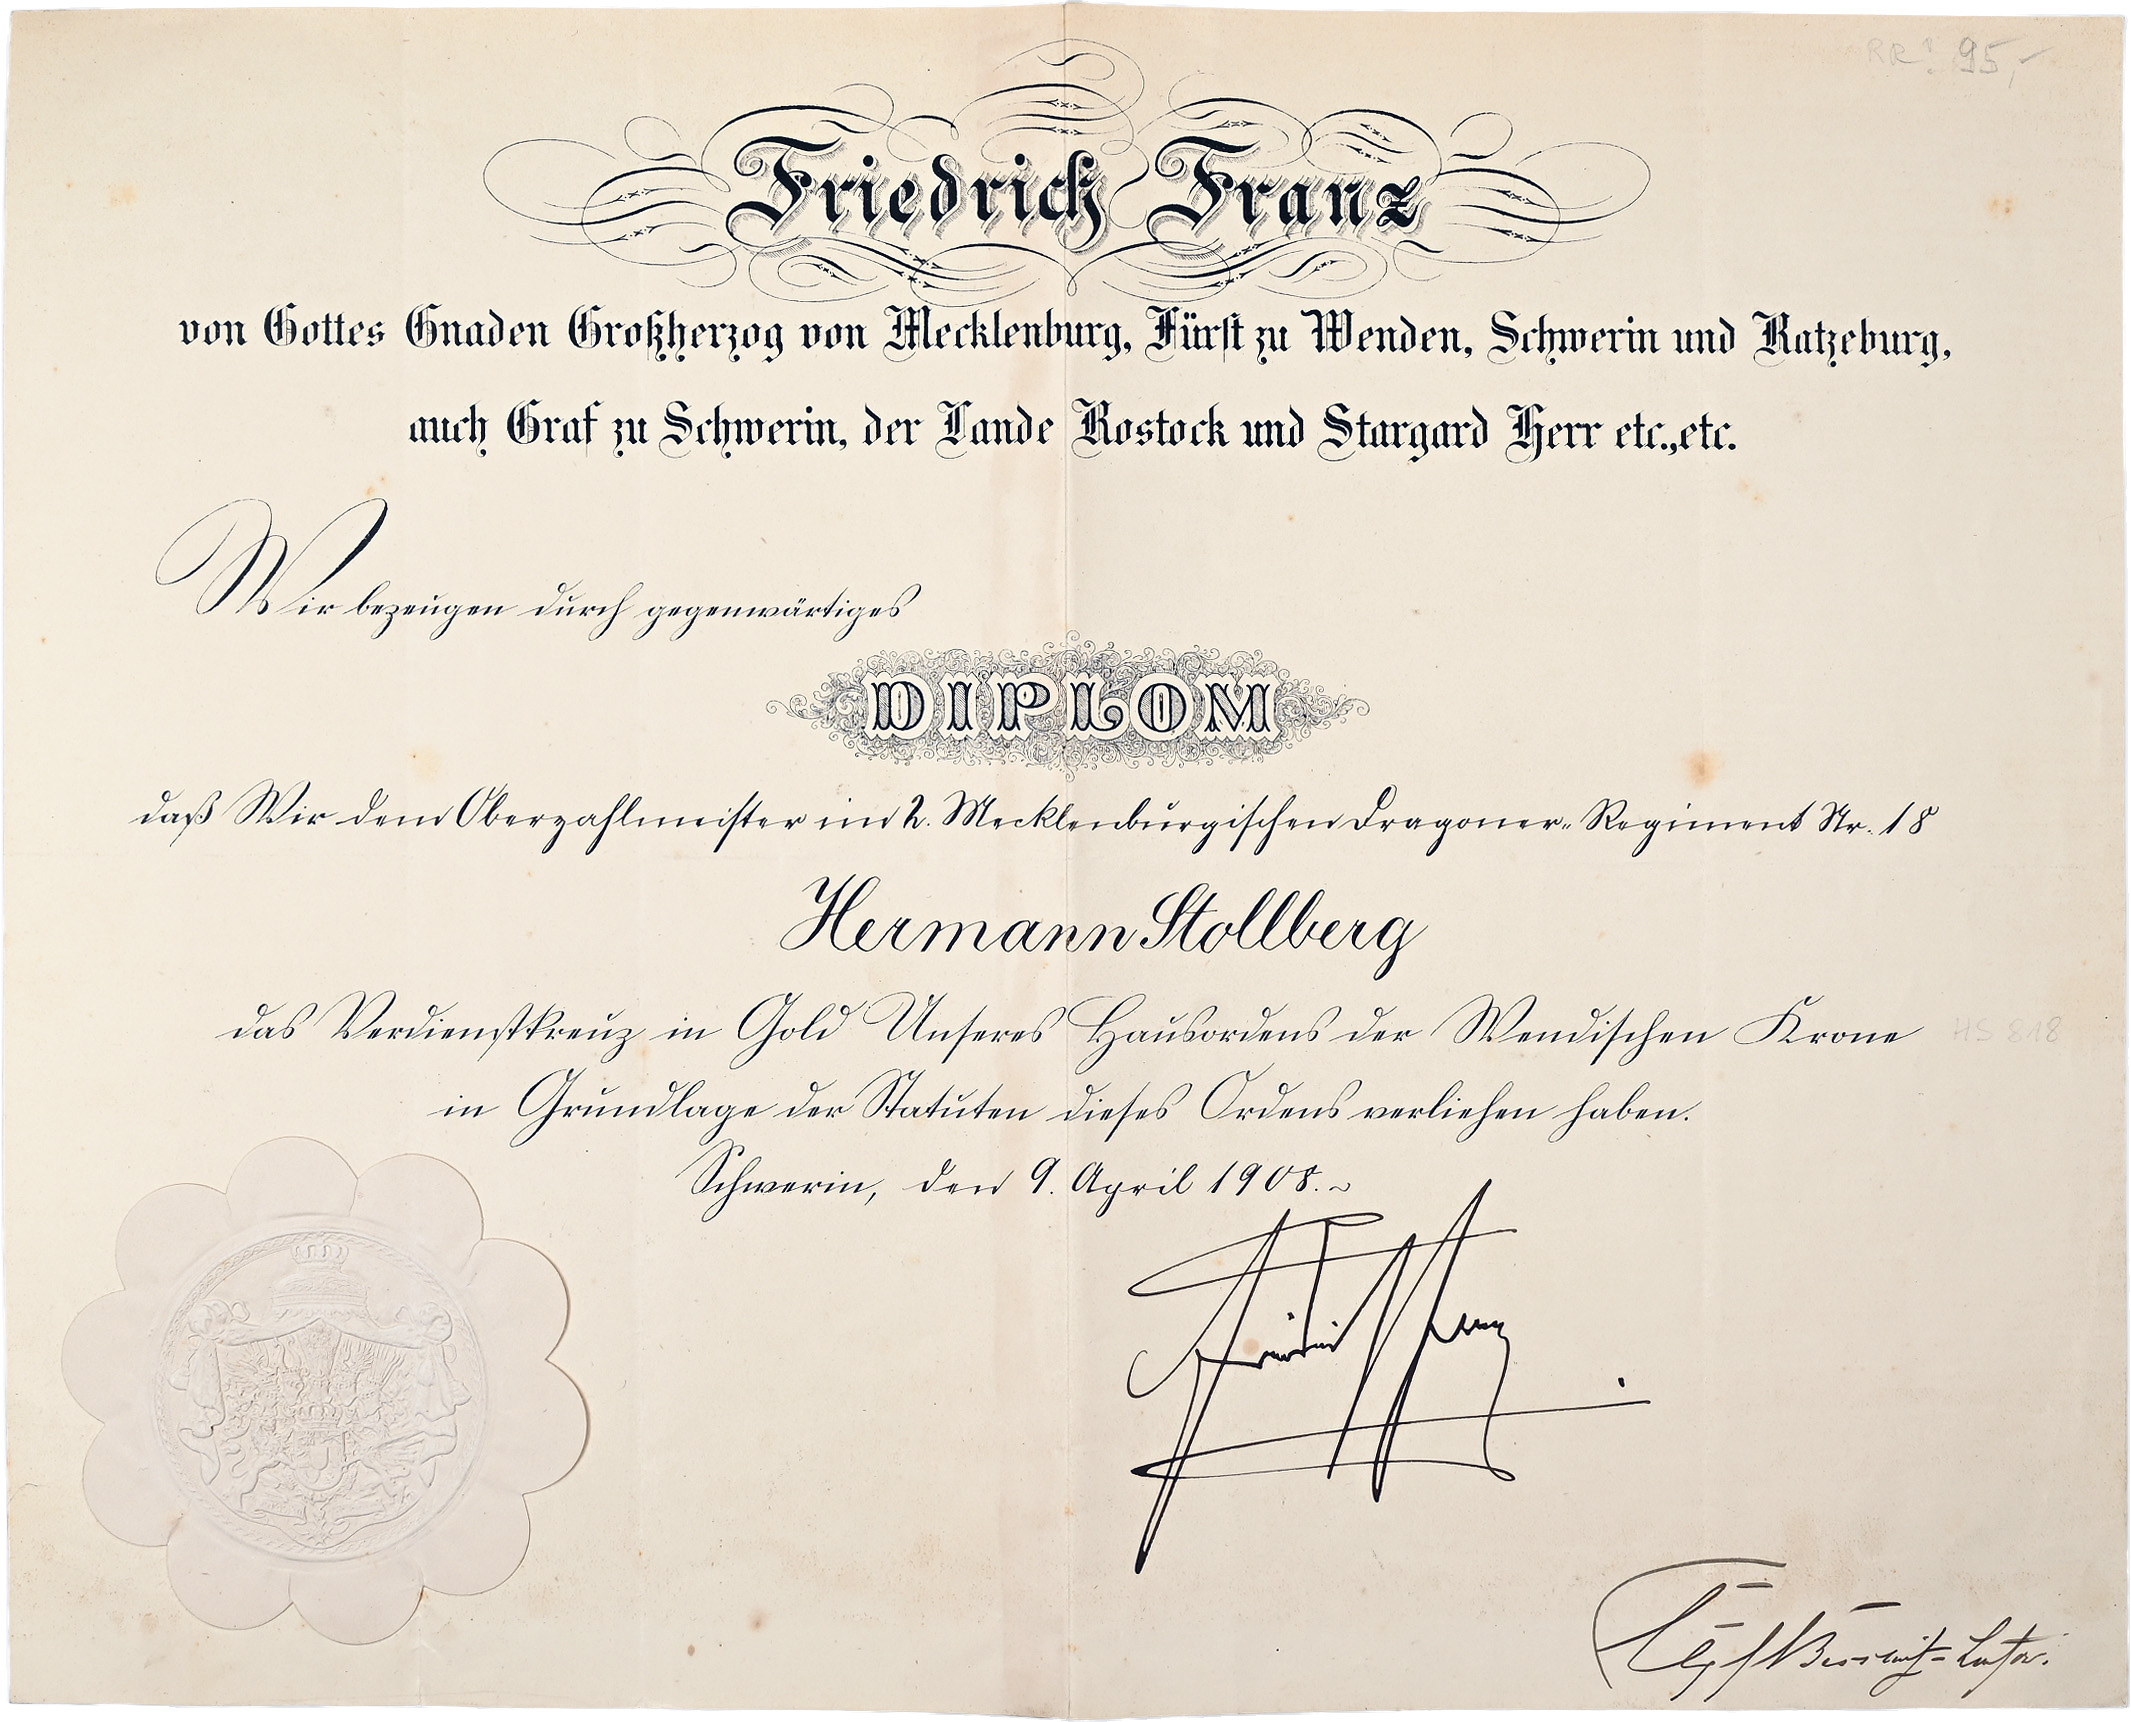 95,-
Friedrich Franz
von Gottes Gnaden Großherzog von Mecklenburg, Fürst zu Wenden, Schwerin und Ratzeburg,
auch Graf zu Schwerin, der Lande Rostock und Stargard Herr etc., etc.
Wir bezeugen durch gegenwärtiges
DIPLOM
daß Wir dem Oberzahlmeister im 2. Mecklenburgischen Dragoner-Regiment Nr. 18
Hermann Stollberg
das Verdienstkreuz in Gold Unseres Hausordens der Wendischen Krone
HS 818
in Grundlage der Statuten dieses Ordens verliehen haben.
Schwerin, den 9. April 1908.
Friedrich Franz